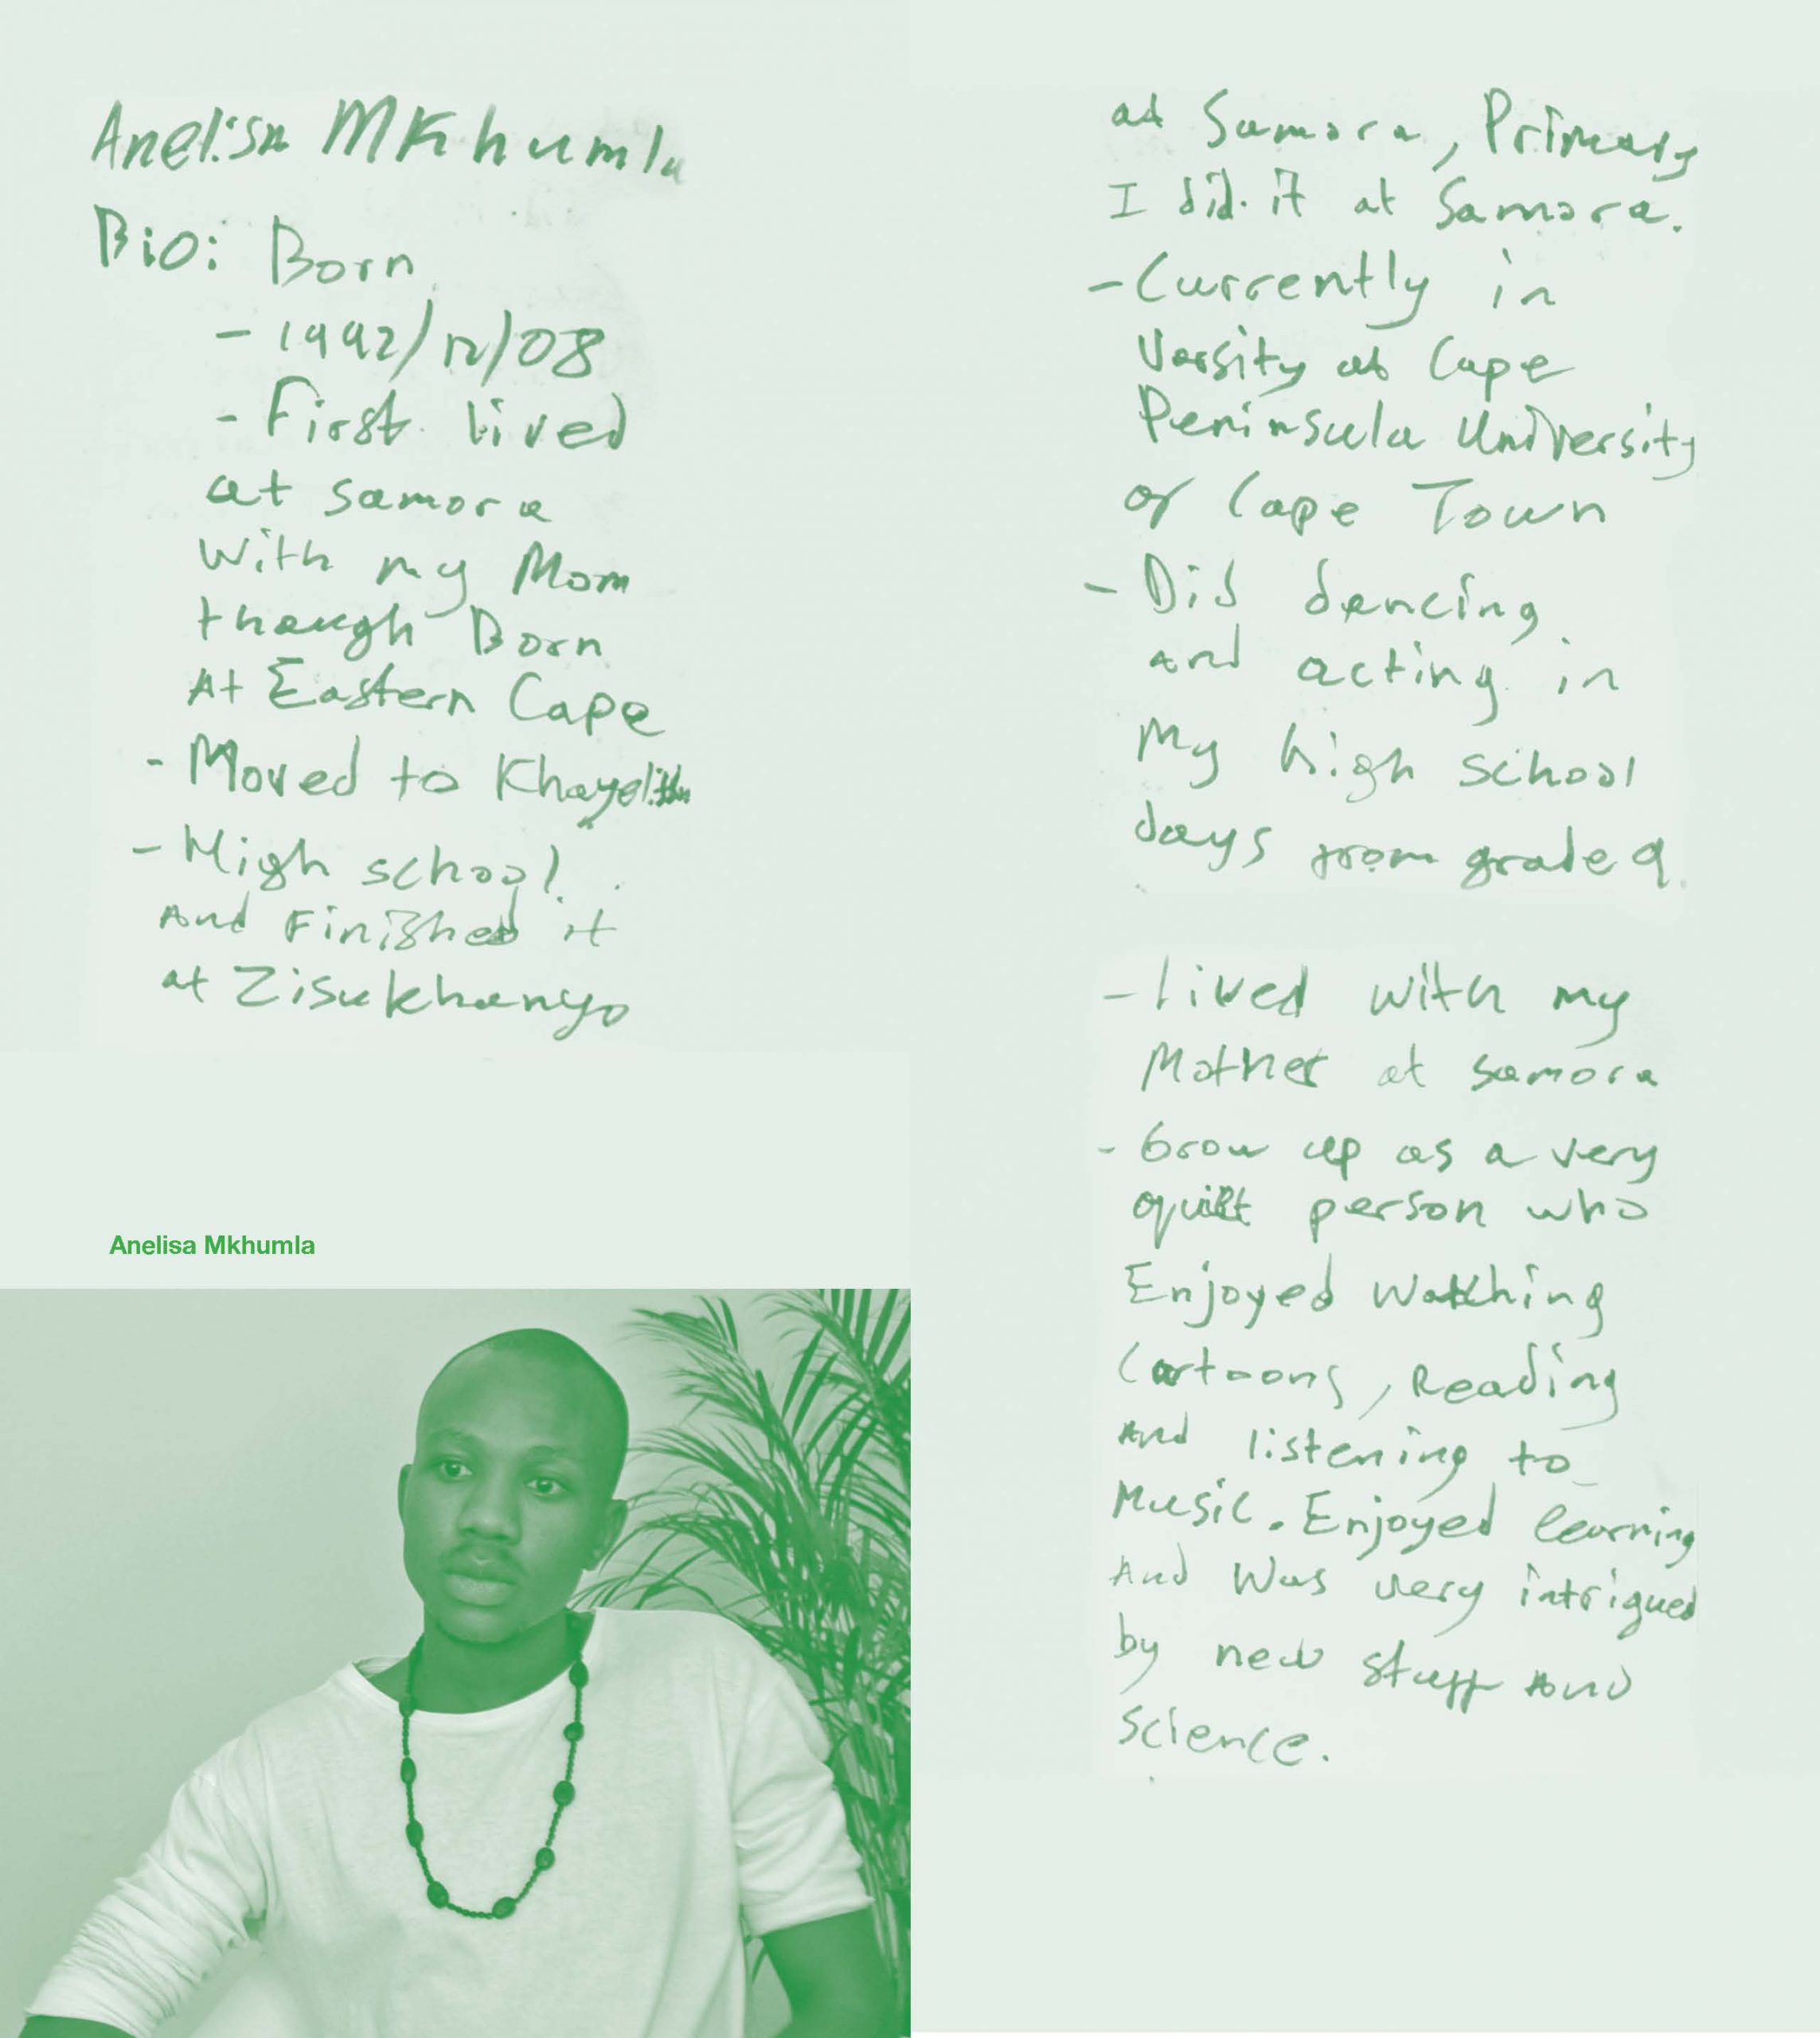 Anelisa MKhumla
Bio: Born
- 1992/12/08
- First lived
at samora
With my Mom
though Born
At Eastern Cape
- Moved to Khayelitha
- High school
And Finished it
at Zisukhanyo
Anelisa Mkhumla
at Samora, Primary
I did it at Samora.
- Currently in
Varsity at Cape
Peninsula University
of Cape Town
- Did dancing
and acting in
My high school
days from grade 9.
- lived with my
Mother at samora
- Grow up as a very
quiet person who
Enjoyed Watching
Cartoons, Reading
And listening to
Music. Enjoyed learning
And Was very intrigued
by new stuff And
Science.